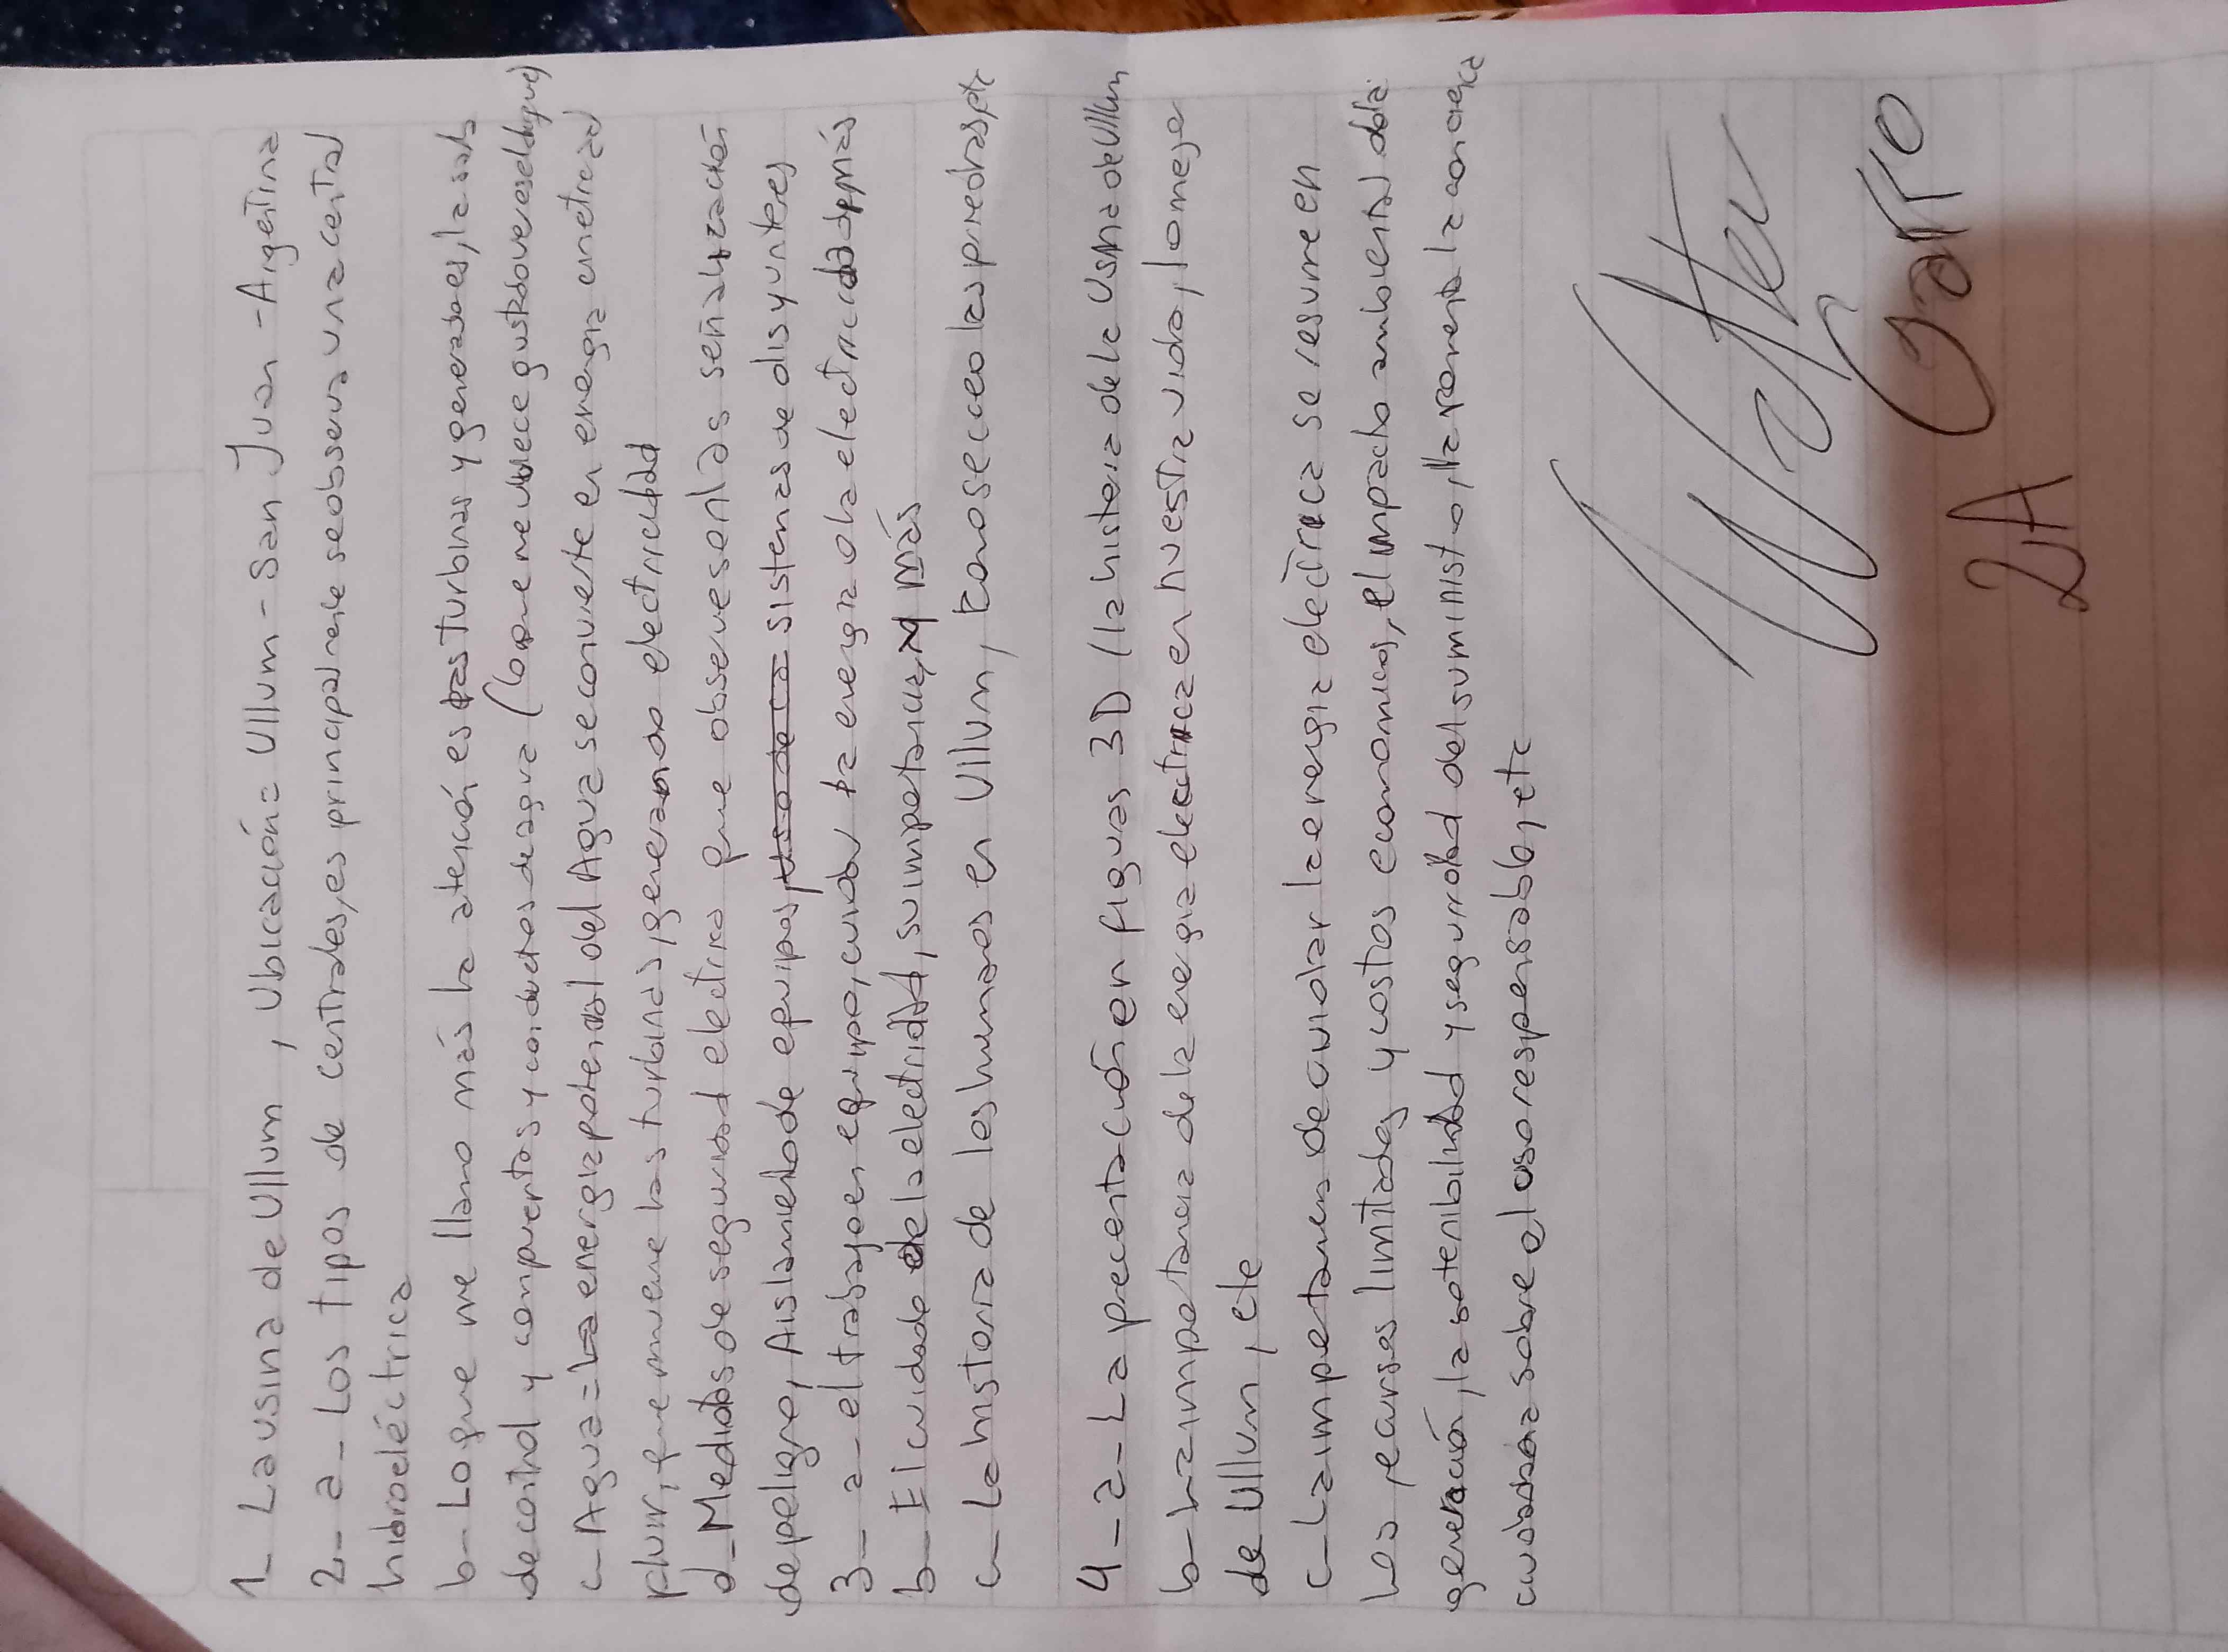 1_ La usina de Ullum , Ubicación= Ullum - San Juan - Argentina
2_ a_ Los tipos de centrales, es principalmente se observa una central
hidroeléctrica
b- Lo que me llamo más la atención, es las turbinas y generadores, la sala
de control y compuertas y conductos de agua (lo que me gusto ver es el agua)
c- Agua= La energia potencial del Agua se convierte en energia cinetica al
fluir, que mueve las turbinas, generando electricidad
d_ Medidas de seguridad electrica que observe son las señalización
de peligro, Aislamiento de equipos, sistemas de disyuntores
3_ a_ el trabajo en equipo, cuidar la energia o la electricidad y más
b_ El cuidado de la electricidad, su importancia, y más
c_ La historia de los humanos en Ullum, como se creo las piedras, etc
4_ a_ La precentación en figuras 3D (la historia de la Usina de Ullum
b- La importancia de la energia electrica en nuestra vida, lo mejor
de Ullum, etc
c- La importancia de cuidar la energia electrica se resume en
Los recursos limitados y costos economicos, el impacto ambiental de la
generación, la sotenibilidad y seguridad del suministro, la conciencia
ciudadana sobre el uso responsable, etc
Mateu
Garro
2A